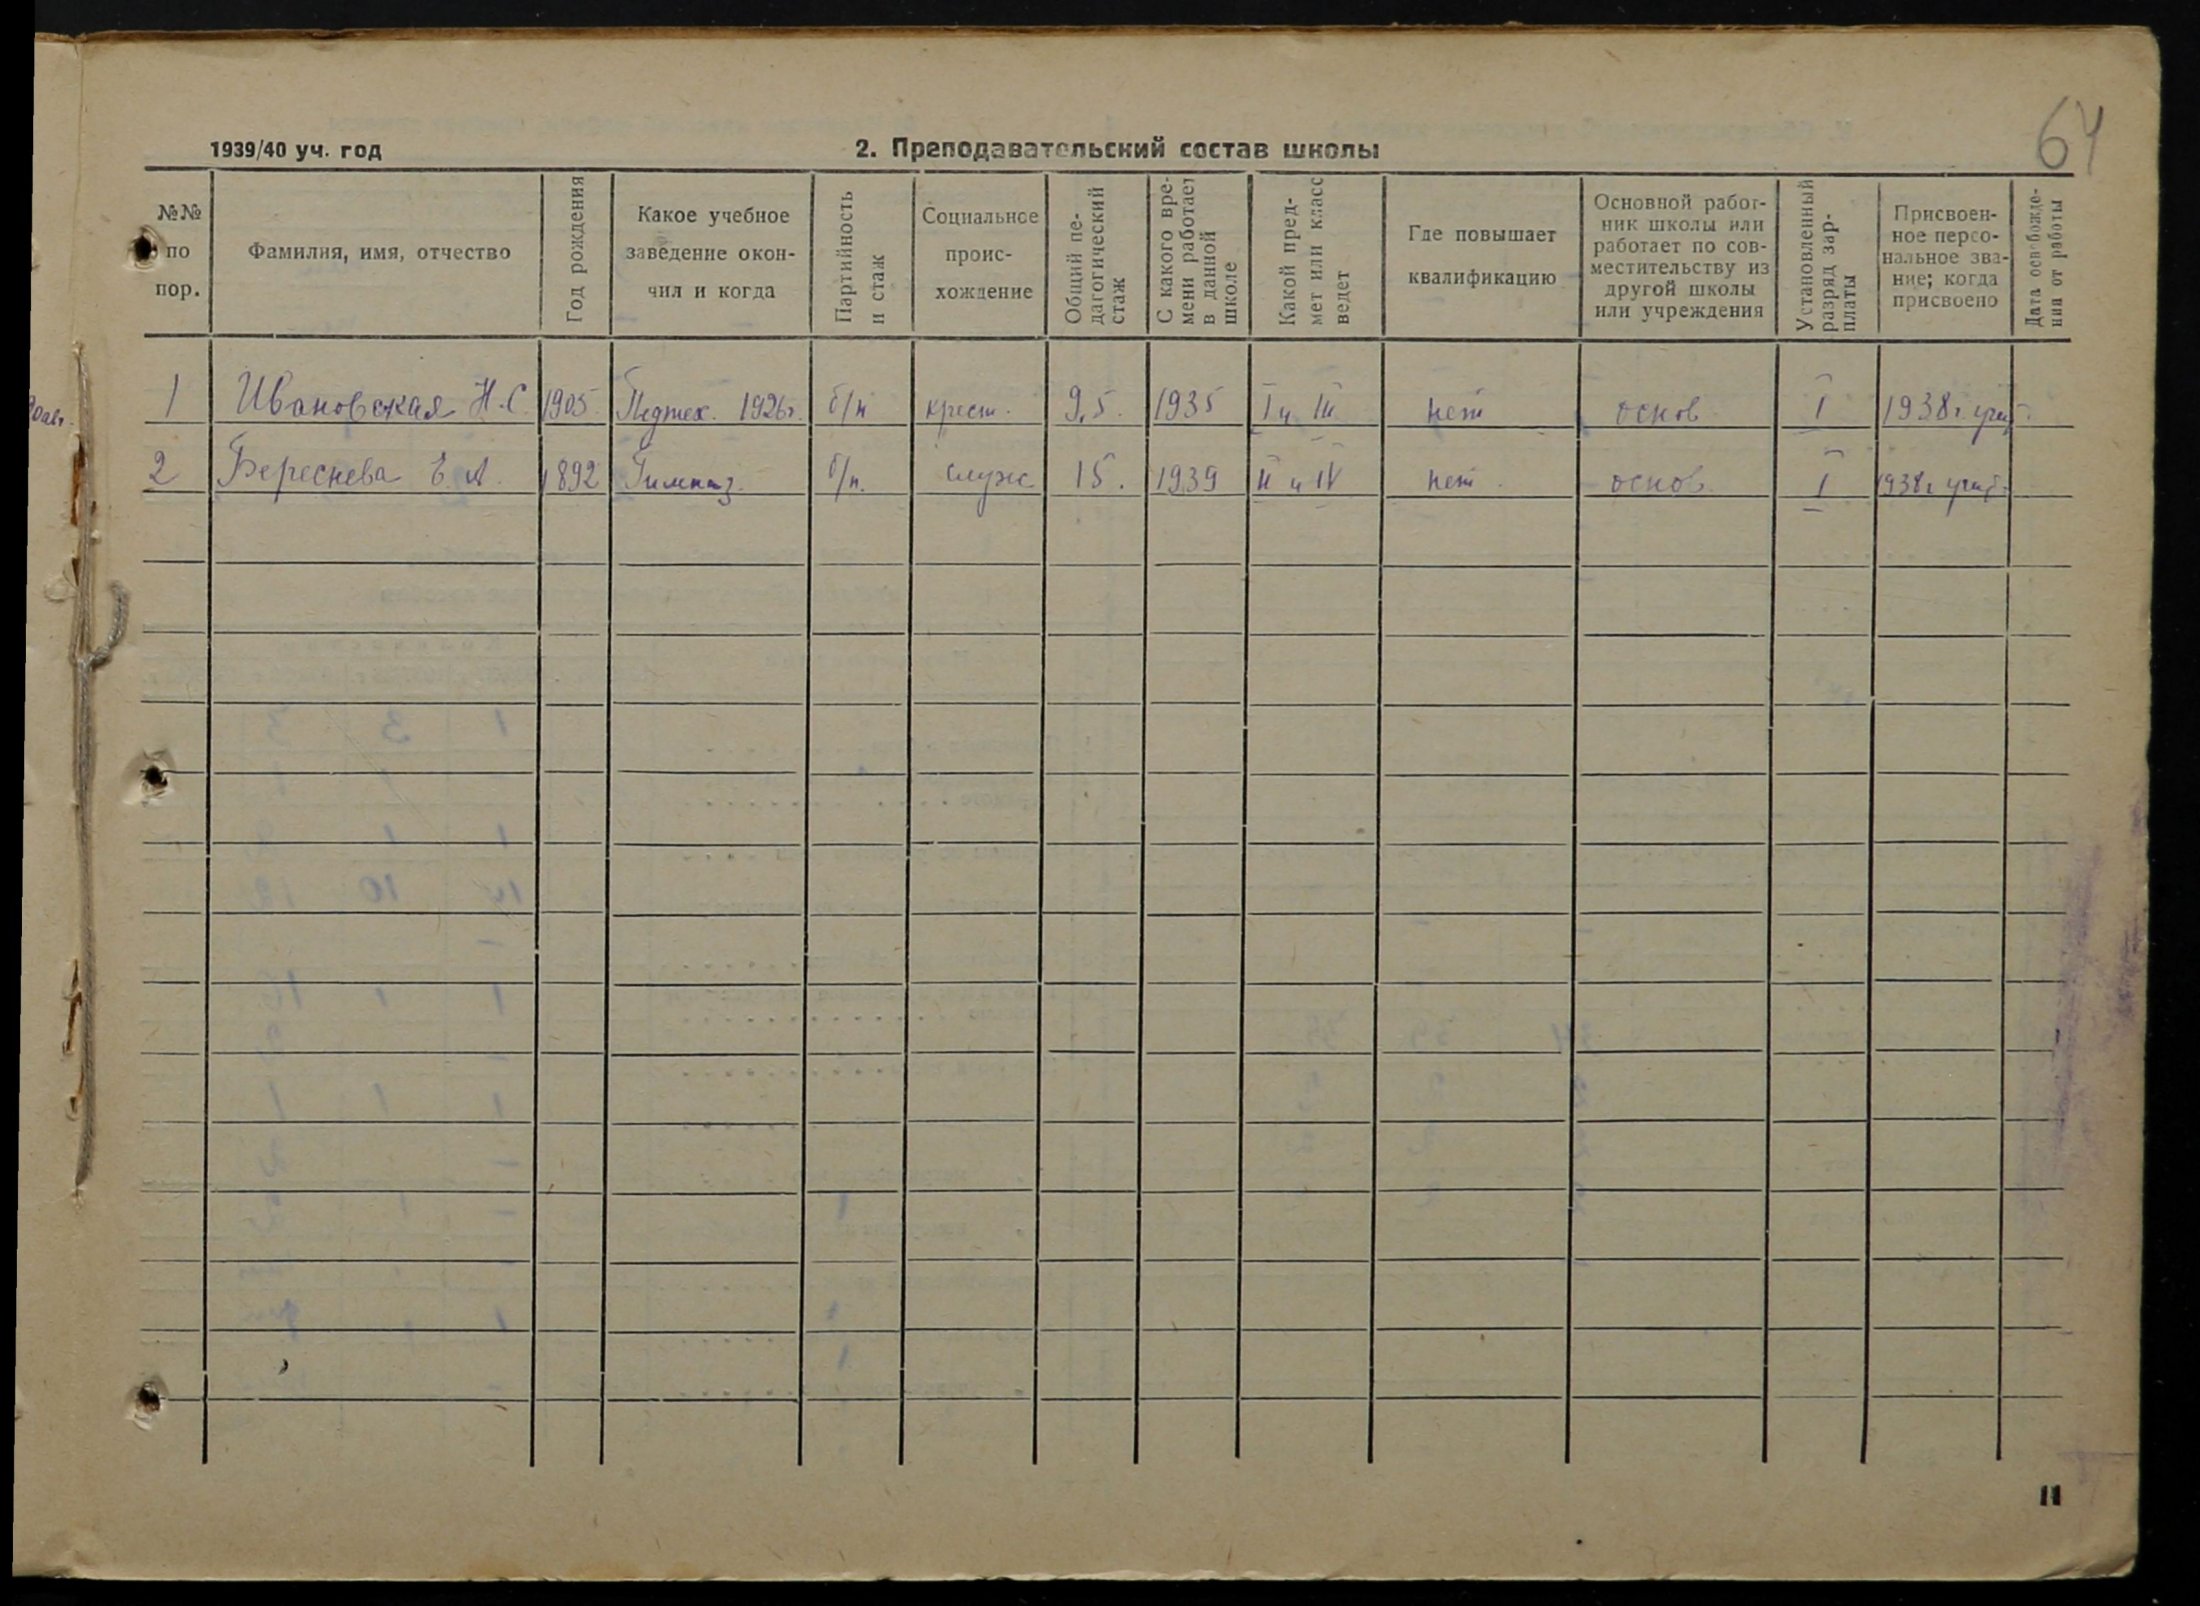 64
1939/40 уч. год
2. Преподавательский состав школы
№№ по пор.
Фамилия, имя, отчество
Год рождения
Какое учебное заведение окон-
чил и когда
Партийность и стаж
Социальное проис-
хождение
Общий пе-
дагогический стаж
С какого вре-
мени работает в данной школе
Какой пред-
мет или класс ведет
Где повышает квалификацию
Основной работ-
ник школы или работает по сов-
местительству из другой школы или учреждения
Установленный разряд зар-
платы
Присвоен-
ное персо-
нальное зва-
ние; когда присвоено
Дата освобожде-
ния от работы
1 Ивановская Н.С. 1905 Педтех. 1926г. б/п крест. 9,5. 1935 I и III нет основ I 1938г. учит.
2 Береснева Е. А. 1892 Гимназ. б/п. служ 15. 1939 II и IV нет. основ. I 1938г учит.
11